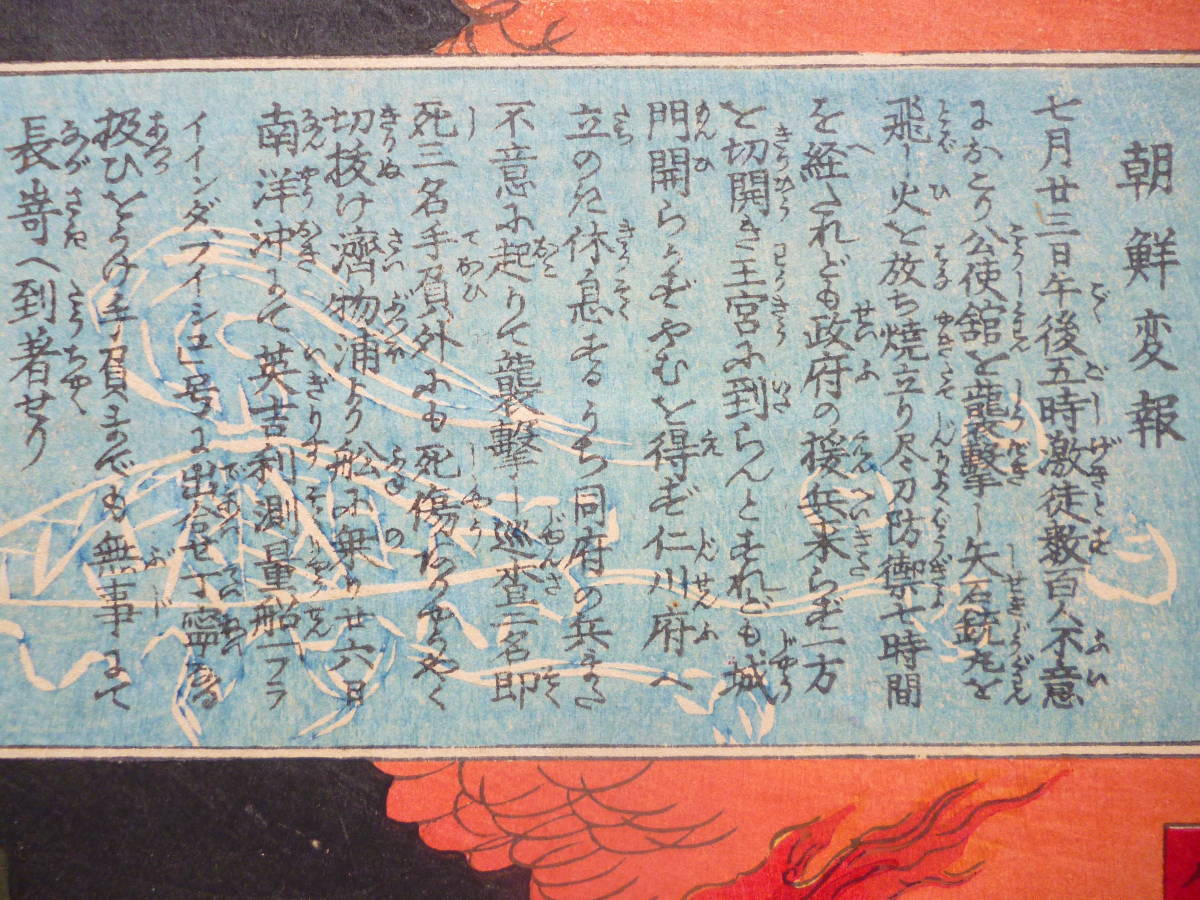 朝鮮変報
七月廿三日午後五時激徒数百人不意
におこり公使舘を襲撃し矢石銃丸を
飛し火を放ち焼立り尽力防禦七時間
を経たれども政府の援兵来らず一方
を切開き王宮に到らんとすれども城
門開らかずやむを得ず仁川府へ
立のき休息するうち同府の兵また
不意に起りて襲撃し巡査二名即
死三名手負外にも死傷ありやうやく
切抜け濟物浦より船に乗り廿六日
南洋沖にて英吉利測量船「フラ
イインダフイシユ」号に出合せ丁寧なる
扱ひをうけ手負までも無事にて
長嵜へ到着せり